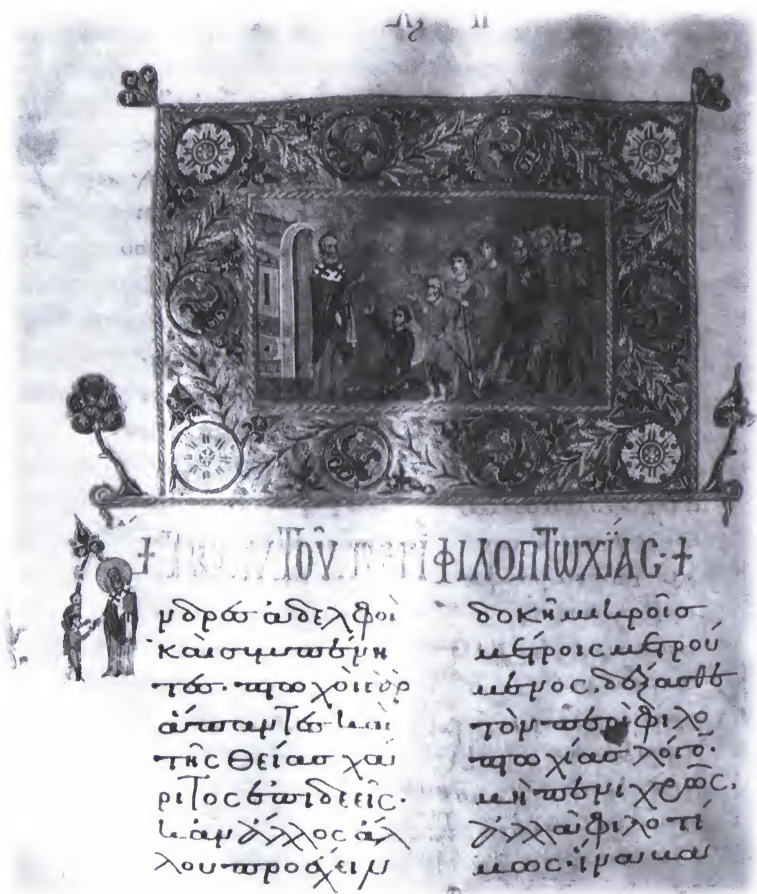 + Τοῦ αὐτοῦ περὶ φιλοπτωχίας · +
νδρεσ ἀδελφοὶ
καὶ συμπένη
τεσ· πτωχοὶ γὰρ
ἅπαντεσ καὶ
τῆς θείασ χά
ριτος ἐπιδεεῖς·
κἂν ἄλλος ἄλ
λου προέχειν
δοκῆ μικροῖσ
μέτροις μετρού
μενος, δέξασθε
τὸν περὶ φιλο
πτωχίασ λόγον·
μὴ πενιχρῶς,
ἀλλὰ φιλοτί
μως· ἵνα κα